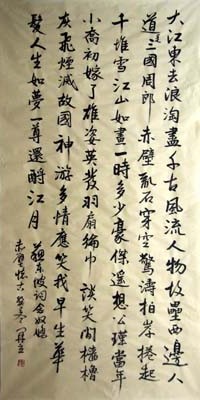 大江東去浪淘盡千古風流人物故壘西邊人
道是三國周郎赤壁亂石穿空驚濤拍岸捲起
千堆雪江山如畫一時多少豪傑遙想公瑾當年
小喬初嫁了雄姿英發羽扇綸巾談笑間檣櫓
灰飛煙滅故國神游多情應笑我早生華
髮人生如夢一尊還酹江月
蘇東坡詞念奴嬌
赤壁懷古